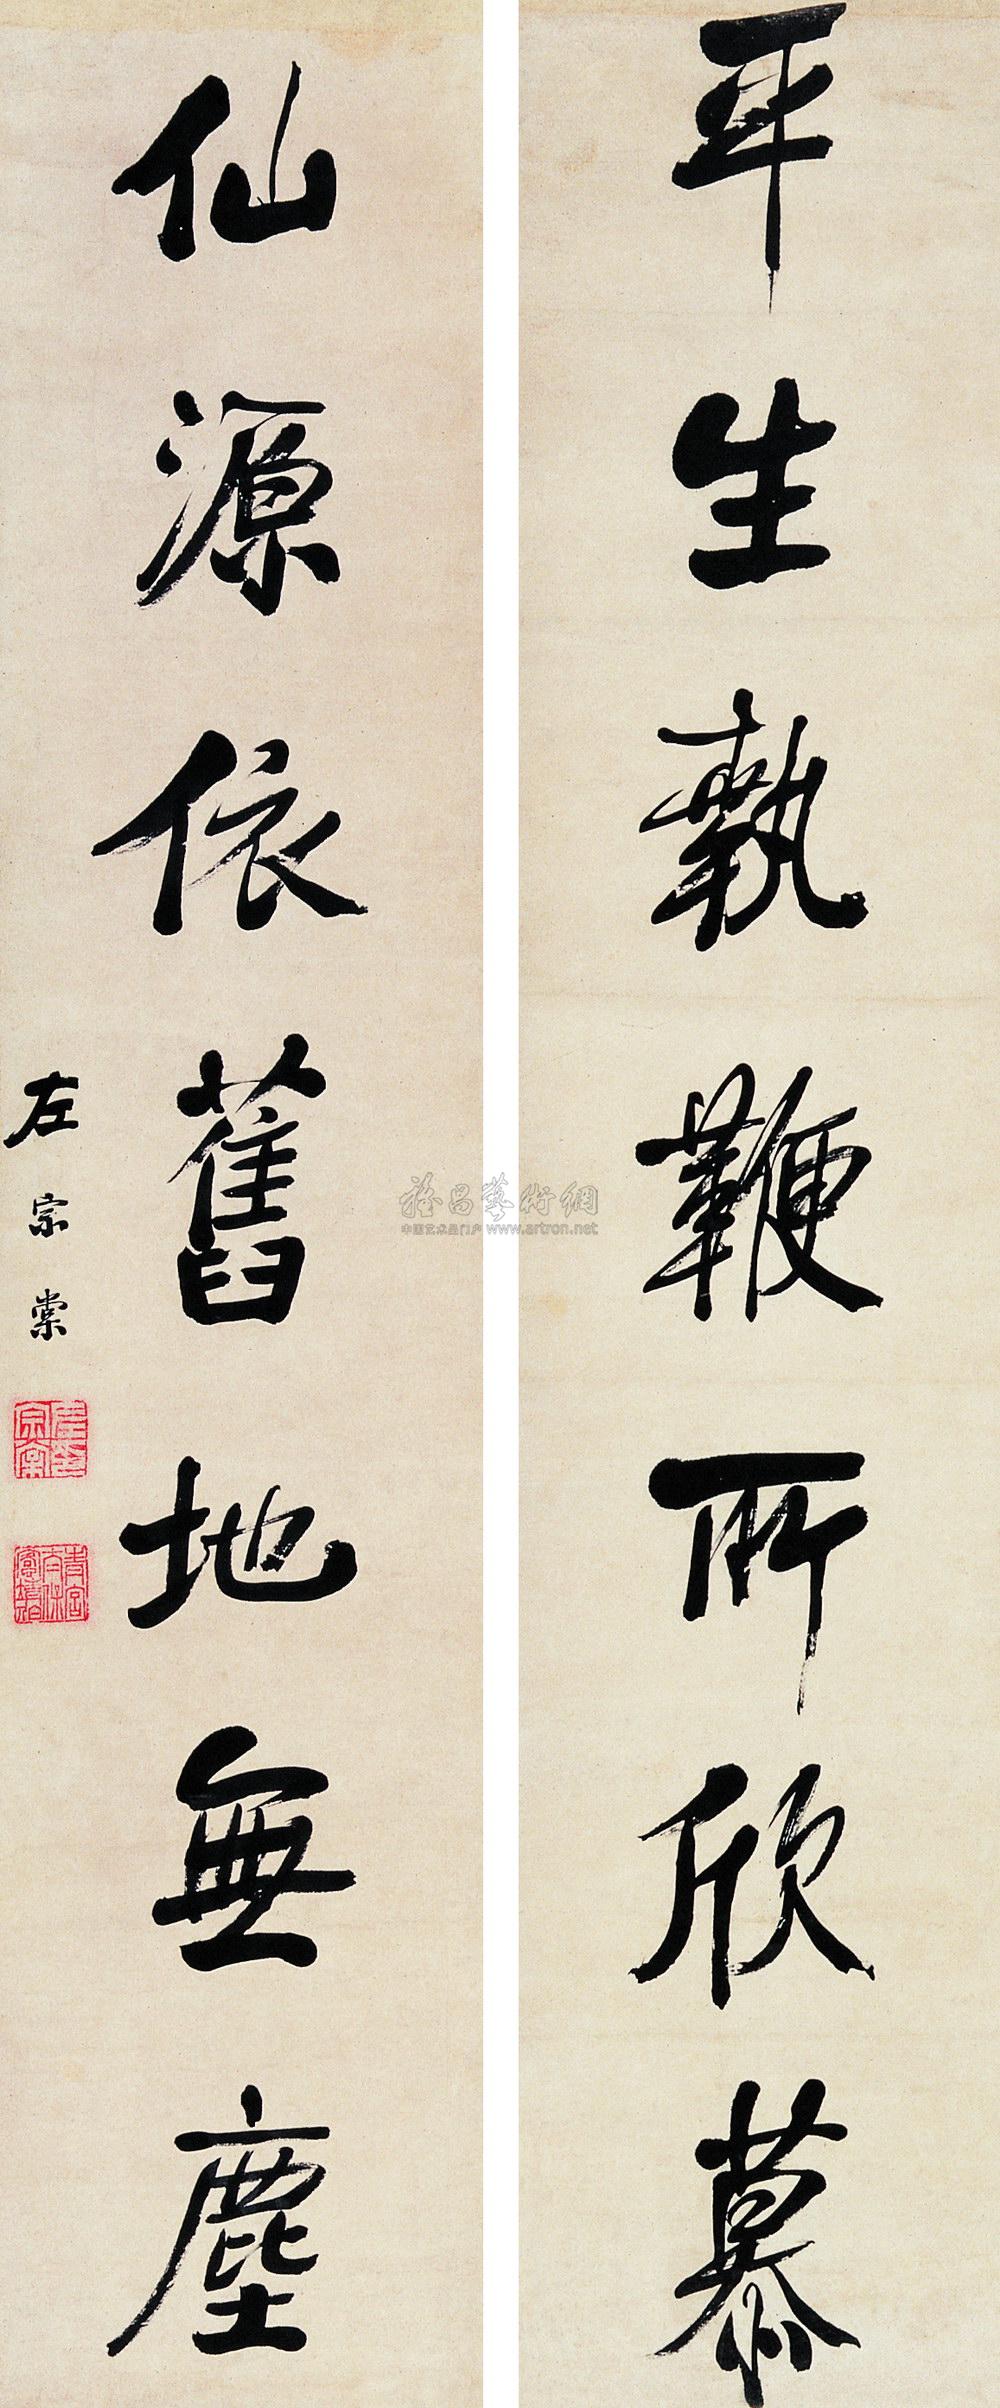 平生執鞭所欣慕
仙源依舊地無塵
左宗棠
雅昌藝術網
中国艺术品门户 www.artron.net